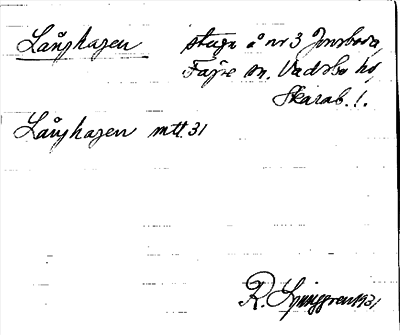 Långhagen stuga å nr 3 Jonsboda,
Fägre sn, Vadsbo hd,
Skarab. l.
Långhagen mtt. 31
R. Ljunggren 1931